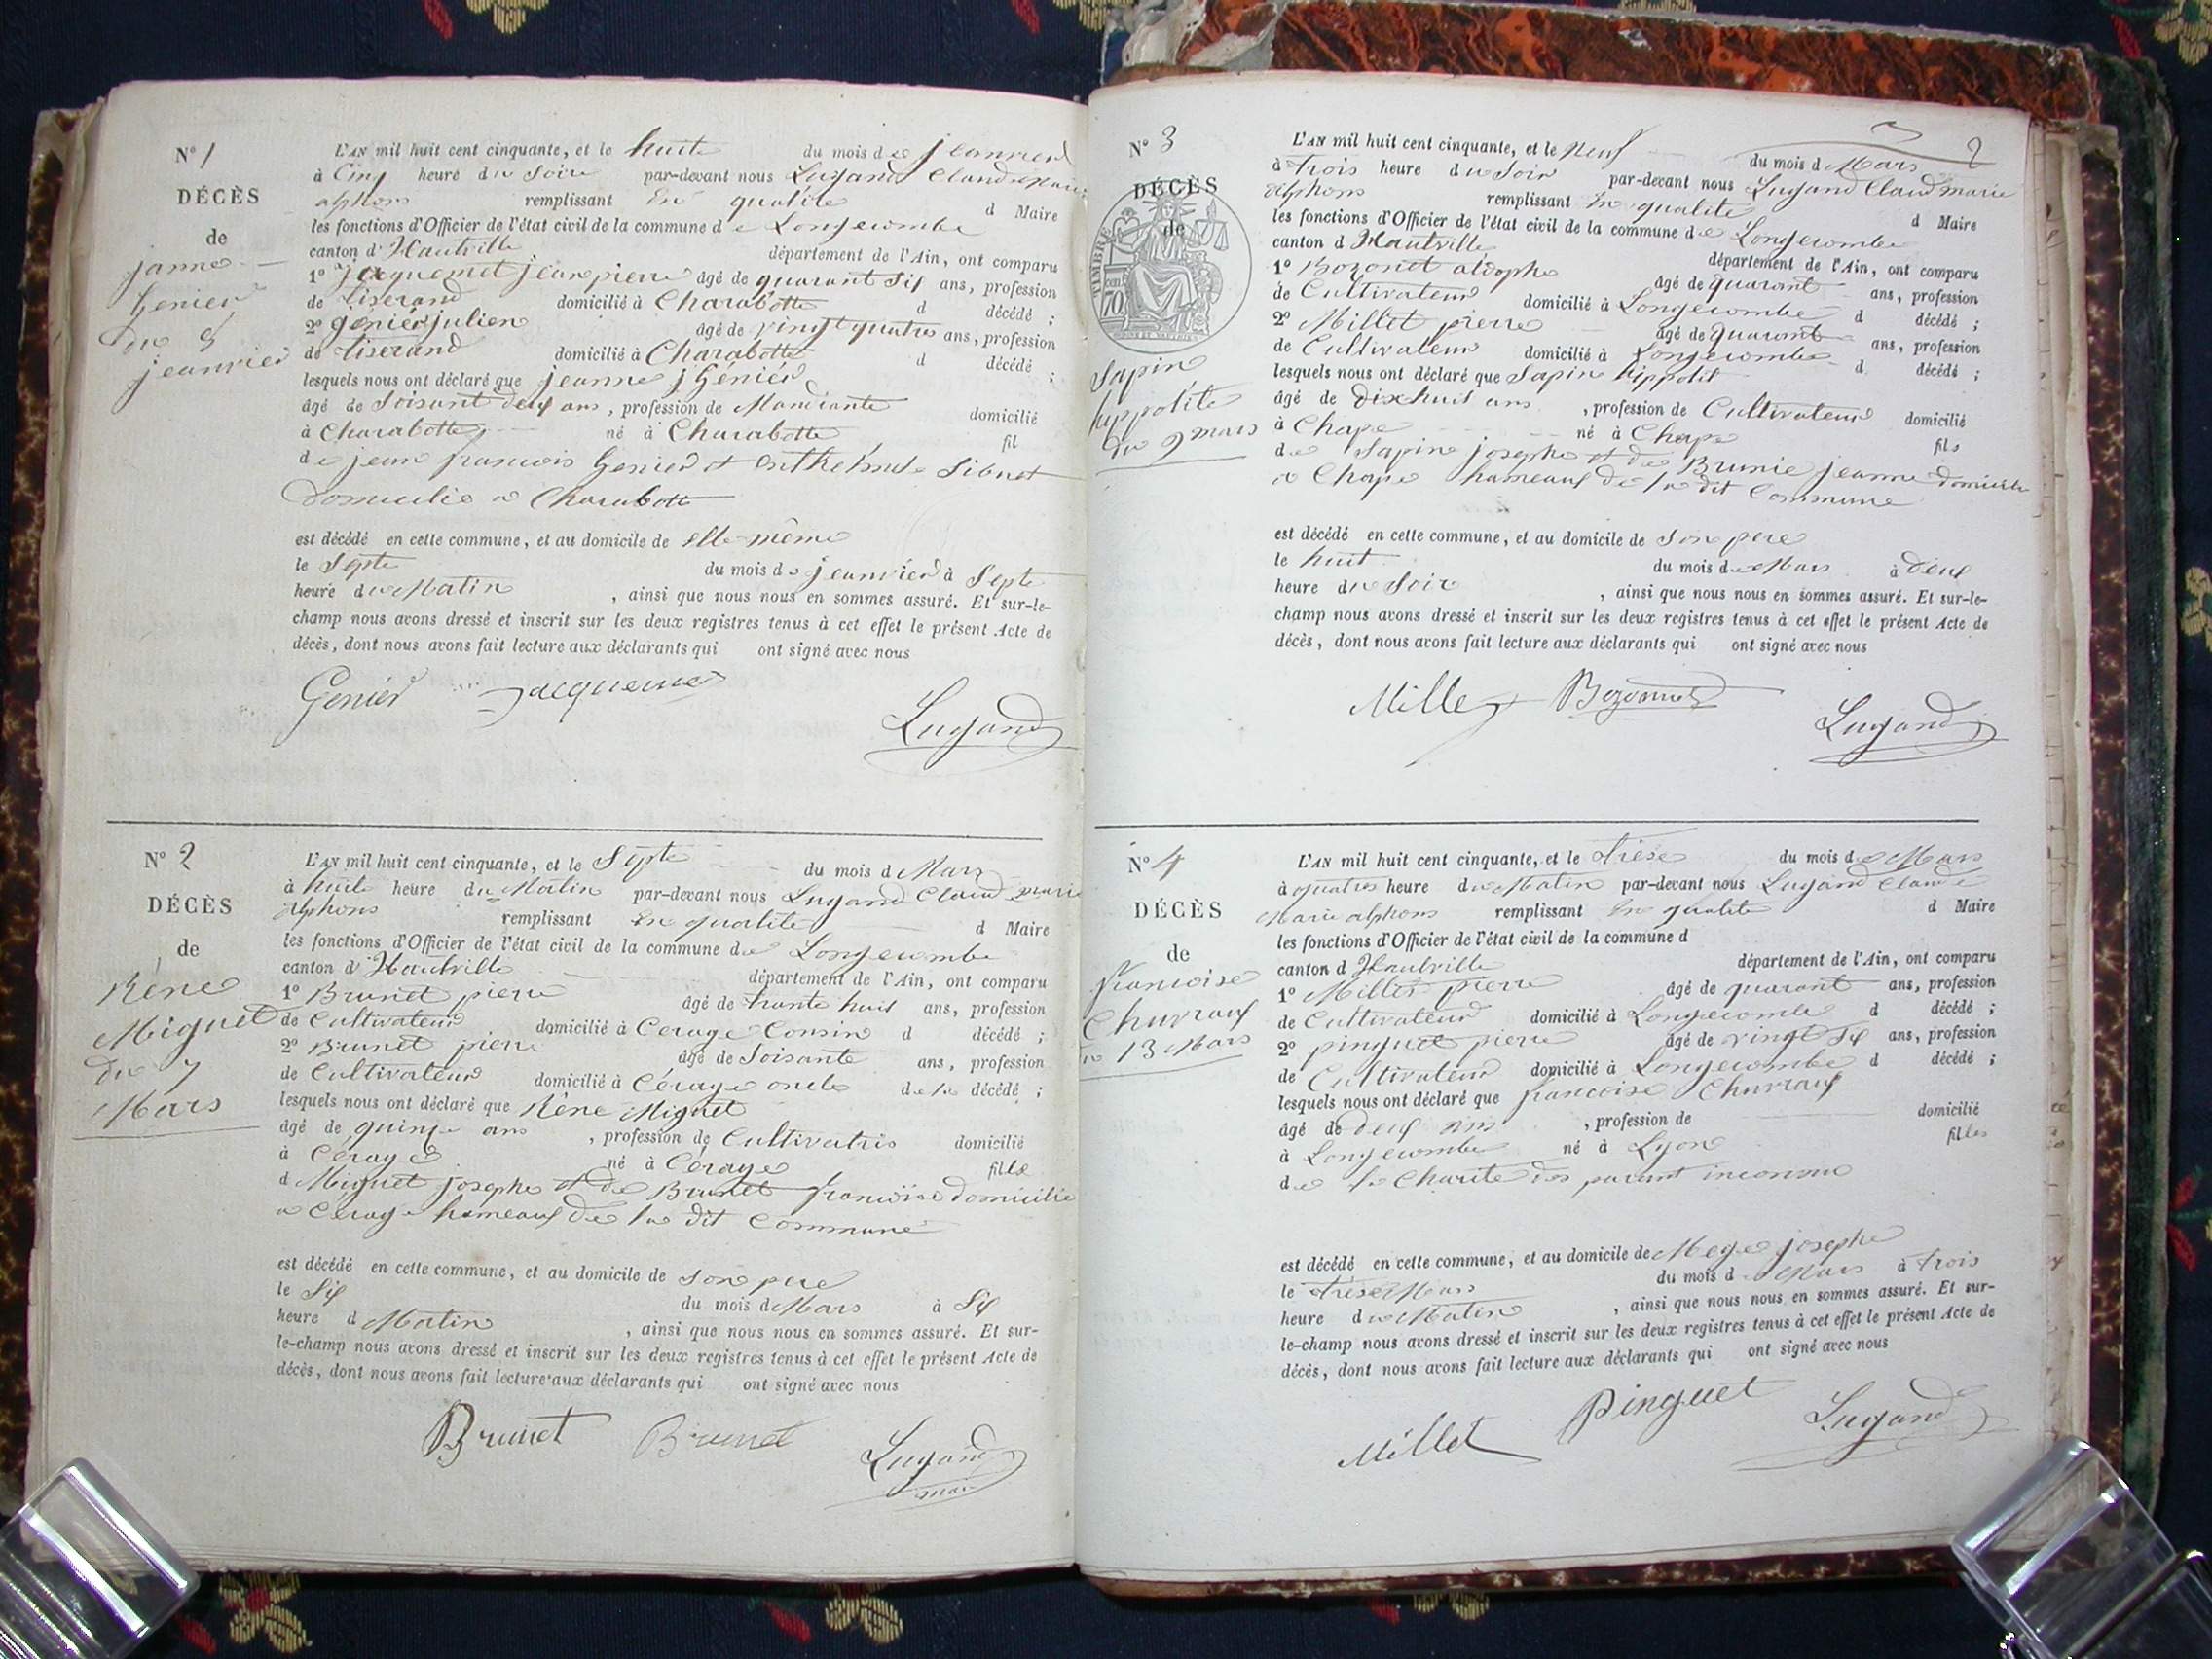 N° 1
DÉCÈS
de
janne
Genier
du 8
jeanvier
L'AN mil huit cent cinquante, et le huite du mois de jeanvier
à Cinq heure du Soire par-devant nous Lugand Claude marie
alphons remplissant en qualite d Maire
les fonctions d'Officier de l'état civil de la commune de Longecombe
canton d'Hautville département de l'Ain, ont comparu
1° Jacquemet jean pierre âgé de quarant Six ans, profession
de Tiserand domicilié à Charabotte d décédé ;
2° Génier julien âgé de vingt quatre ans, profession
de Tiserand domicilié à Charabotte d décédé ;
lesquels nous ont déclaré que jeanne j Génier
âgé de Soisant deux ans, profession de Mandiante domicilié
à Charabotte né à Charabotte fil
de jean francois Genier et Sibuet
Domicilie a Charabotte
est décédé en cette commune, et au domicile de elle même
le Septe du mois de jeanvier à Septe
heure du Matin , ainsi que nous nous en sommes assuré. Et sur-le-
champ nous avons dressé et inscrit sur les deux registres tenus à cet effet le présent Acte de
décès, dont nous avons fait lecture aux déclarants qui ont signé avec nous
Genier Jacquemet
Lugand
N° 2
DÉCÈS
de
Réne
Miguet
du 7
Mars
L'AN mil huit cent cinquante, et le Septe du mois d Mars
à huite heure du Matin par-devant nous Lugand Claud marie
alphons remplissant en qualite d Maire
les fonctions d'Officier de l'état civil de la commune de Longecombe
canton d'Hautville département de l'Ain, ont comparu
1° Brunet pierre âgé de trante huit ans, profession
de Cultivateur domicilié à Cerage Cousin d décédé ;
2° Brunet pierre âgé de Soisante ans, profession
de Cultivateur domicilié à Cérage oncle de la décédé ;
lesquels nous ont déclaré que Réne Miguet
âgé de quinze ans , profession de Cultivatris domicilié
à Cérage né à Cérage fille
d Miguet josephe et de Brunet francoise domicilie
a Cérage hameaux de la dit Commune
est décédé en cette commune, et au domicile de Son pere
le Six du mois d Mars à Six
heure d Matin , ainsi que nous nous en sommes assuré. Et sur-
le-champ nous avons dressé et inscrit sur les deux registres tenus à cet effet le présent Acte de
décès, dont nous avons fait lecture aux déclarants qui ont signé avec nous
Brunet Brunet
Lugand
2
N° 3
DÉCÈS
de
TIMBRE
70
Sapin
hyppolite
du 9 mars
L'AN mil huit cent cinquante, et le Neuf du mois d Mars
à trois heure du Soir par-devant nous Lugand Claud marie
alphons remplissant en qualite d Maire
les fonctions d'Officier de l'état civil de la commune de Longecombe
canton d Hautville département de l'Ain, ont comparu
1° Bozonet aldophe âgé de quarant ans, profession
de Cultivateur domicilié à Longecombe d décédé ;
2° Millet pierre âgé de quarant ans, profession
de Cultivateur domicilié à Longecombe d décédé ;
lesquels nous ont déclaré que Sapin hippolit
âgé de Dix huit ans , profession de Cultivateur domicilié
à Chape né à Chape fils
de Sapin josephe et de Brunie jeanne domicilie
a Chape hameaux de la dit Commune
est décédé en cette commune, et au domicile de Son pere
le huit du mois de Mars à deux
heure du Soir , ainsi que nous nous en sommes assuré. Et sur-le-
champ nous avons dressé et inscrit sur les deux registres tenus à cet effet le présent Acte de
décès, dont nous avons fait lecture aux déclarants qui ont signé avec nous
Millet Bozonnet
Lugand
N° 4
DÉCÈS
de
francoise
Churraux
du 13 Mars
L'AN mil huit cent cinquante, et le trese du mois de Mars
à quatre heure du Matin par-devant nous Lugand Claude
Marie alphons remplissant en qualite d Maire
les fonctions d'Officier de l'état civil de la commune d
canton d Hautville département de l'Ain, ont comparu
1° Millet pierre âgé de quarant ans, profession
de Cultivateur domicilié à Longecombe d décédé ;
2° pinguet pierre âgé de vingt Six ans, profession
de Cultivateur domicilié à Longecombe d décédé ;
lesquels nous ont déclaré que francoise Churraux
âgé de deux ans , profession de domicilié
à Longecombe né à Lyon filles
de la Charite des parant inconnu
est décédé en cette commune, et au domicile de Mege josephe
le trese Mars du mois de Mars à trois
heure du Matin , ainsi que nous nous en sommes assuré. Et sur-
le-champ nous avons dressé et inscrit sur les deux registres tenus à cet effet le présent Acte de
décès, dont nous avons fait lecture aux déclarants qui ont signé avec nous
Millet Pinguet Lugand